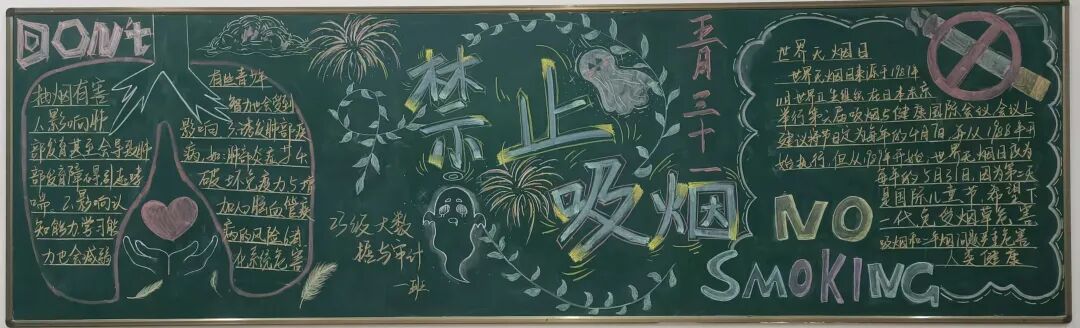 DON't
抽烟有害
1.影响肺
部发育甚至会导致肺
部发育障碍引起哮
喘 2.影响认
知能力学习能
力也会减弱
有些青少年
智力也会受到
影响 3.诱发肺部疾
病,如:肺炎
破坏免疫力与增
加心脑血管疾
病的风险
化系统危害
禁止
吸烟
23级大数
据与审计
一班
五月三十一
NO
SMOKING
世界无烟日
世界无烟日来源于1987年
11月世界卫生组织在日本东京
举行第六届吸烟与健康国际会议会议上
建议将每年的4月7日 并从1988年开
始执行,但从1989年开始,世界无烟日改为
每年的5月31日,因为第二天
是国际儿童节,希望下
一代免受烟草危害
吸烟和二手烟问题严重危害
人类健康